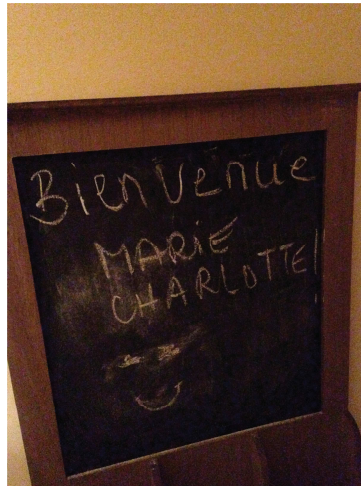 Bienvenue
MARIE
CHARLOTTE!!